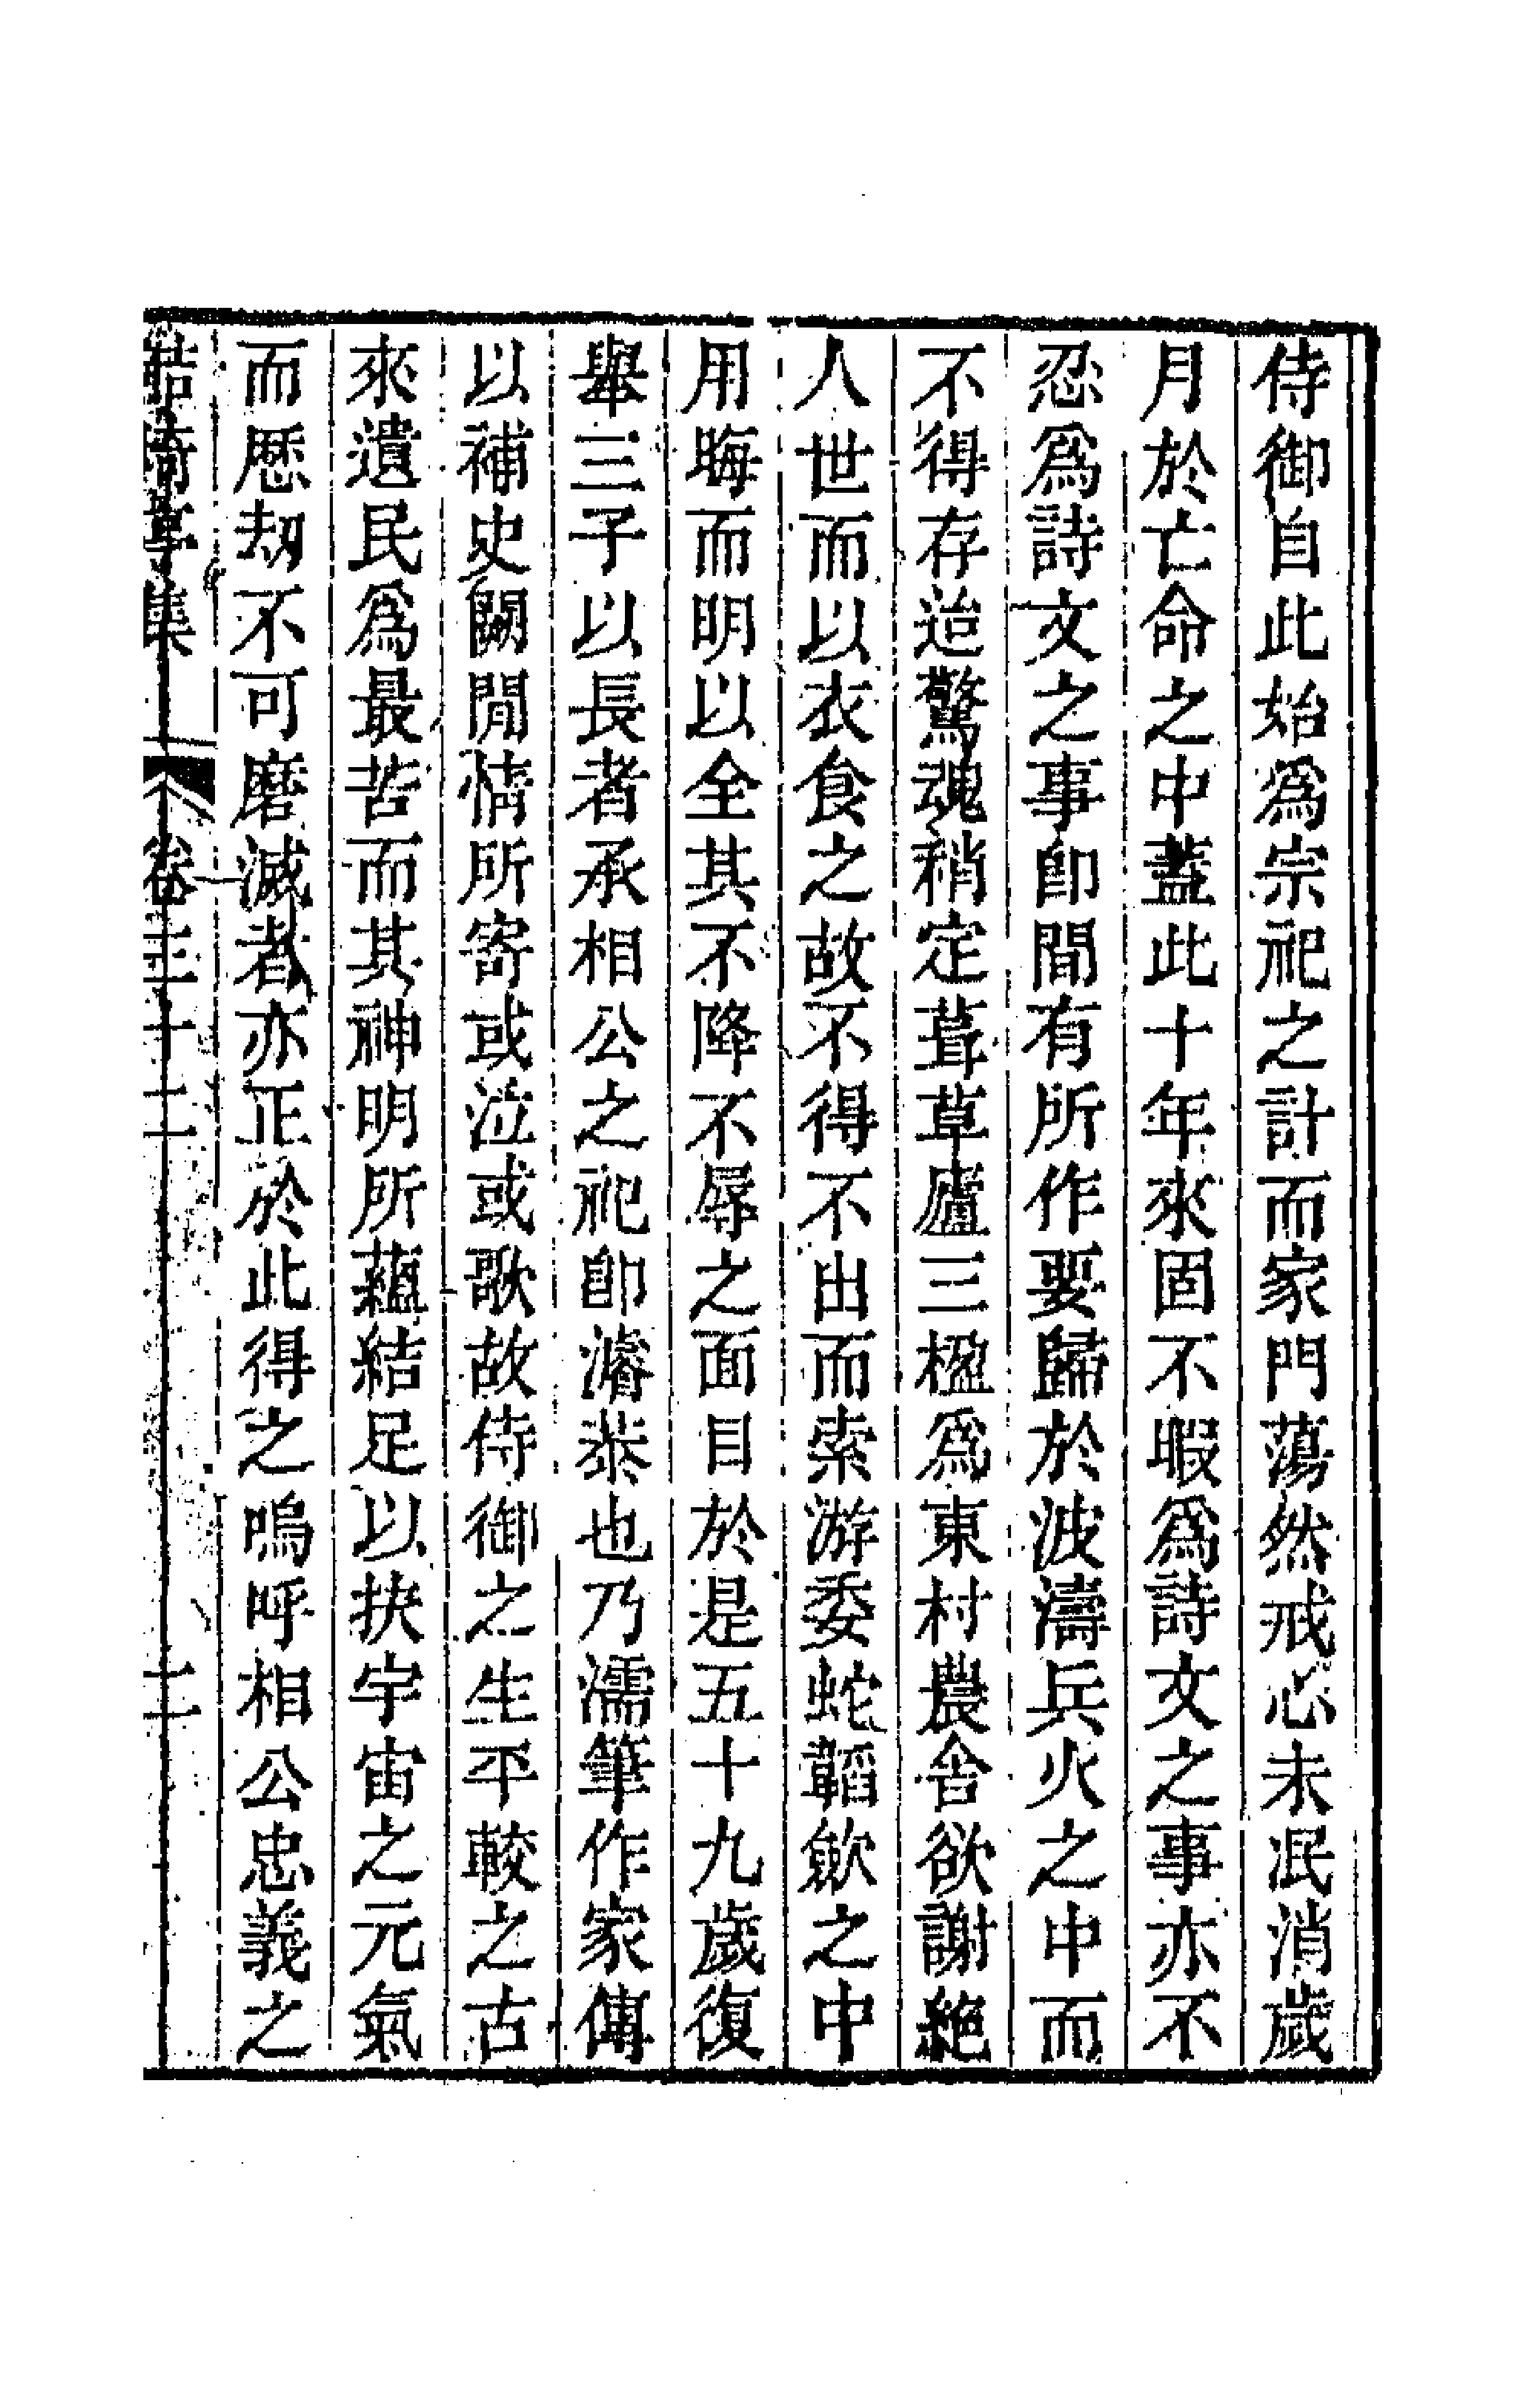 侍御自此始爲宗祀之計而家門蕩然戒心未泯消歲
月於亡命之中蓋此十年來固不暇爲詩文之事亦不
忍爲詩文之事卽間有所作要歸於波濤兵火之中而
不得存迨驚魂稍定葺草廬三楹爲東村農舍欲謝絶
人世而以衣食之故不得不出而索游委蛇韜斂之中
用晦而明以全其不降不辱之面目於是五十九歲復
舉三子以長者承相公之祀卽濬恭也乃濡筆作家傳
以補史闕閒情所寄或泣或歌故侍御之生平較之古
來遺民爲最苦而其神明所蘊結足以抉宇宙之元氣
而歷刼不可磨滅者亦正於此得之嗚呼相公忠義之
鮚埼亭集 卷三十二 二